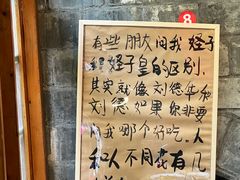 8
有些朋友问我蛏子
和蛏子皇的区别.
其实就像刘德华和
刘德.如果你非要
问我哪个好吃.人
和人不同花有几